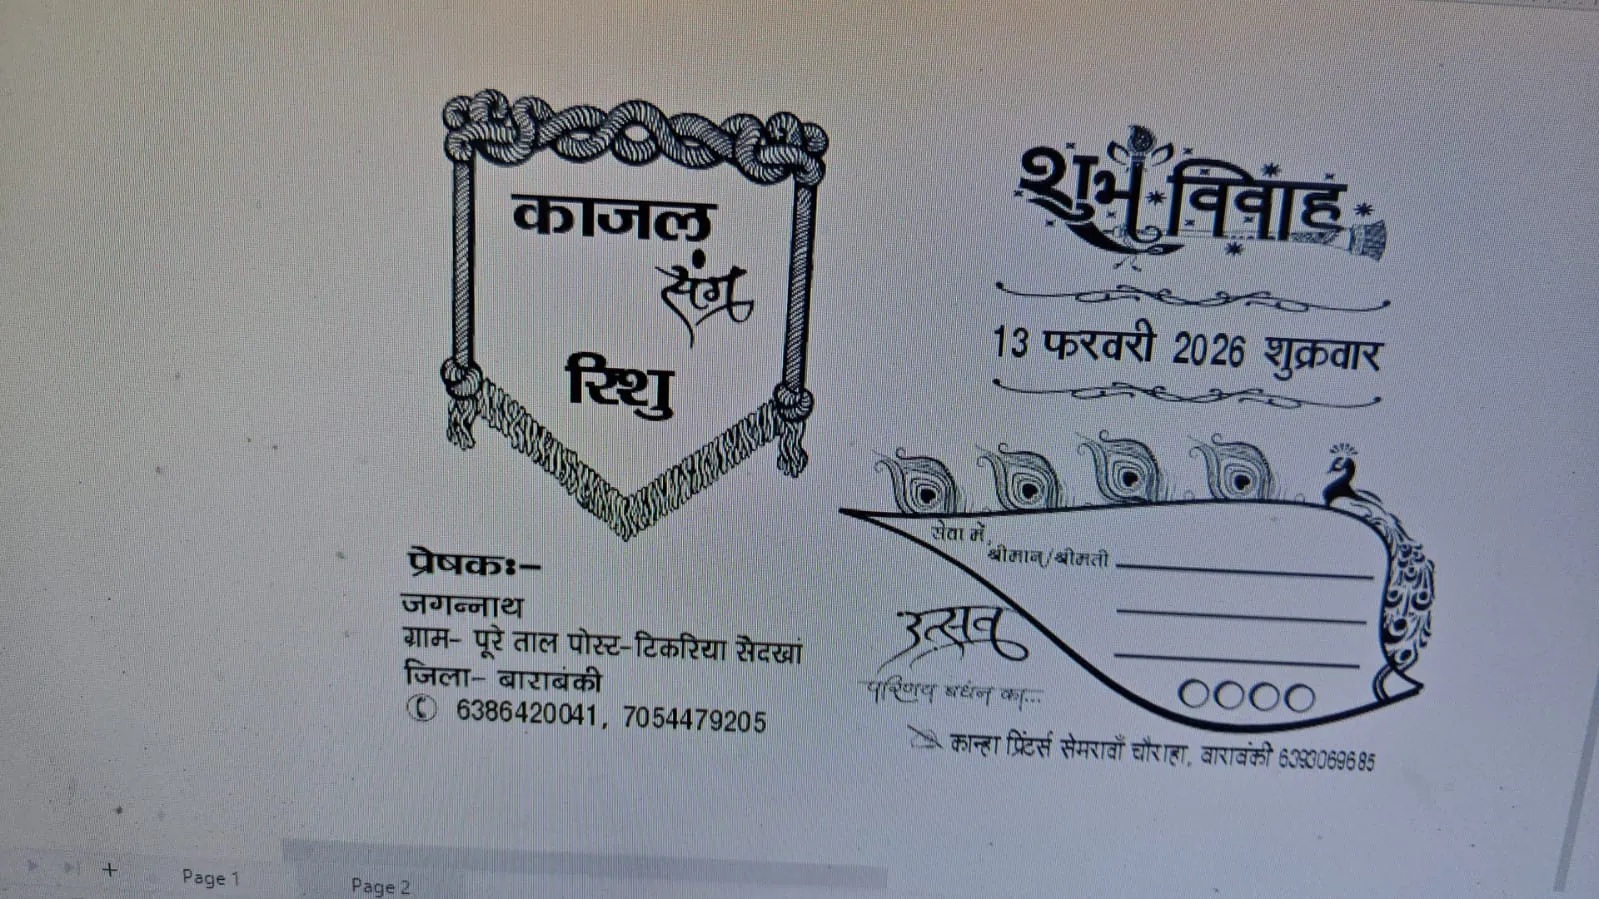 काजल
संग
रिशु
प्रेषकः–
जगन्नाथ
ग्राम- पूरे ताल पोस्ट-टिकरिया सैदखां
जिला- बाराबंकी
6386420041, 7054479205
शुभ विवाह
13 फरवरी 2026 शुक्रवार
सेवा में,
श्रीमान्/श्रीमती
उत्सव
परिणय बंधन का...
कान्हा प्रिंटर्स सेमरावाँ चौराहा, बाराबंकी 6393069685
Page 1
Page 2